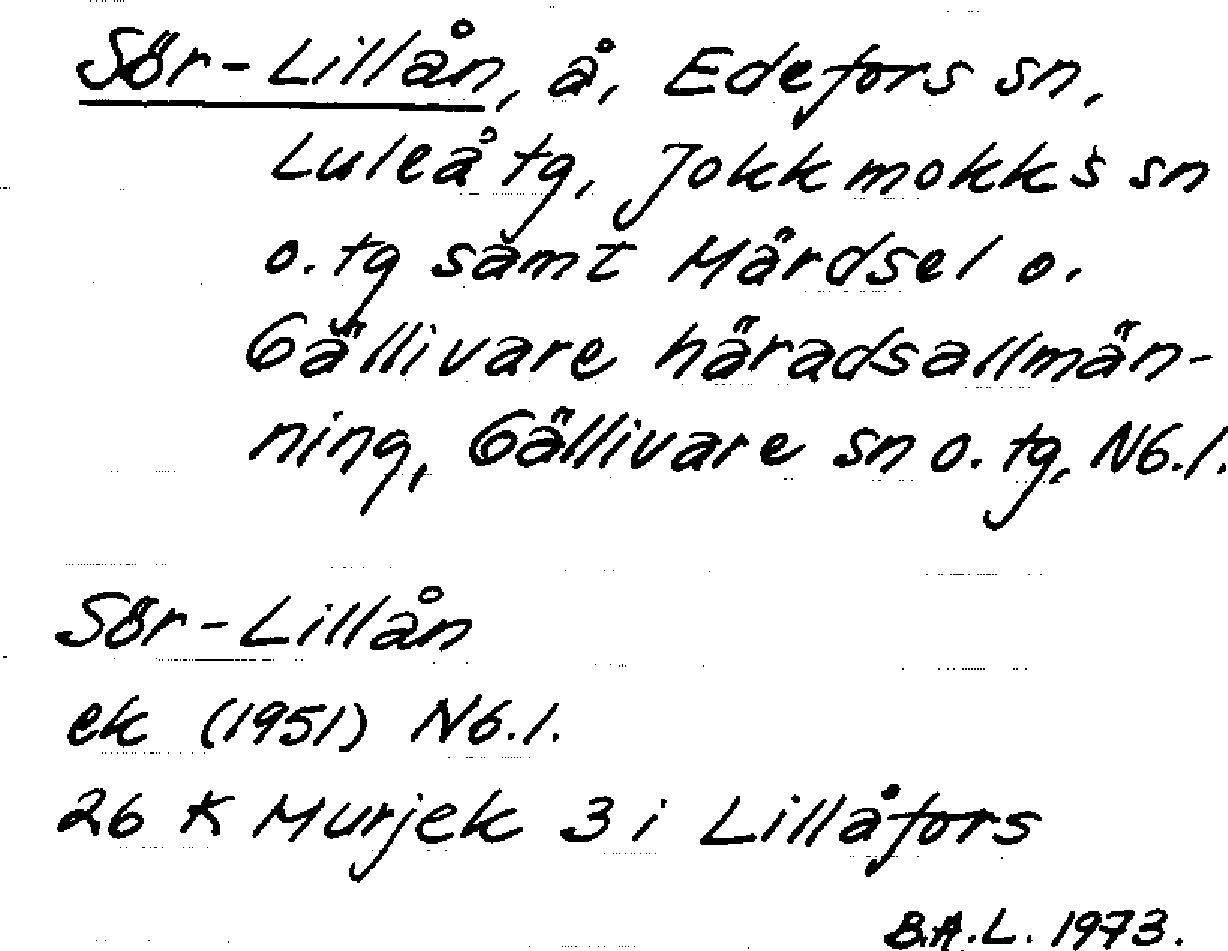 Sör-Lillån, å, Edefors sn,
Luleå tg, Jokkmokks sn
o. tg samt Mårdsel o.
Gällivare häradsallmän-
ning, Gällivare sn o. tg, Nb.l.
Sör-Lillån
ek (1951) Nb.l.
26 K Murjek 3 i Lillåfors
B.A.L. 1973.